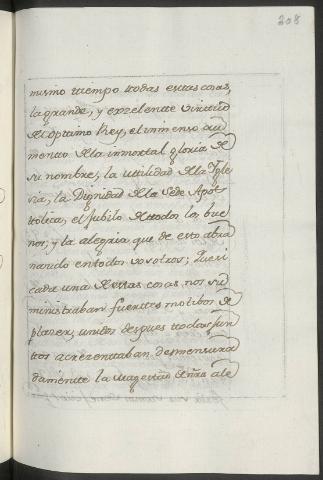 208
mismo tiempo todas estas cosas,
la grande, y exzelente virtud
del optimo Rey, el inmenso au
mento de la inmortal gloria de
su nombre, la utilidad de la Igle
sia, la Dignidad de la Sede Apos
tolica, el jubilo de todos los bue
nos, y la alegria, que de esto abia
nacido en todos vosotros; Pues si
cada una de estas cosas nos su
ministraban fuertes motibos de
plazer, unidas despues todas jun
tas acrezentaban desmensura
damente la magestad de nra ale